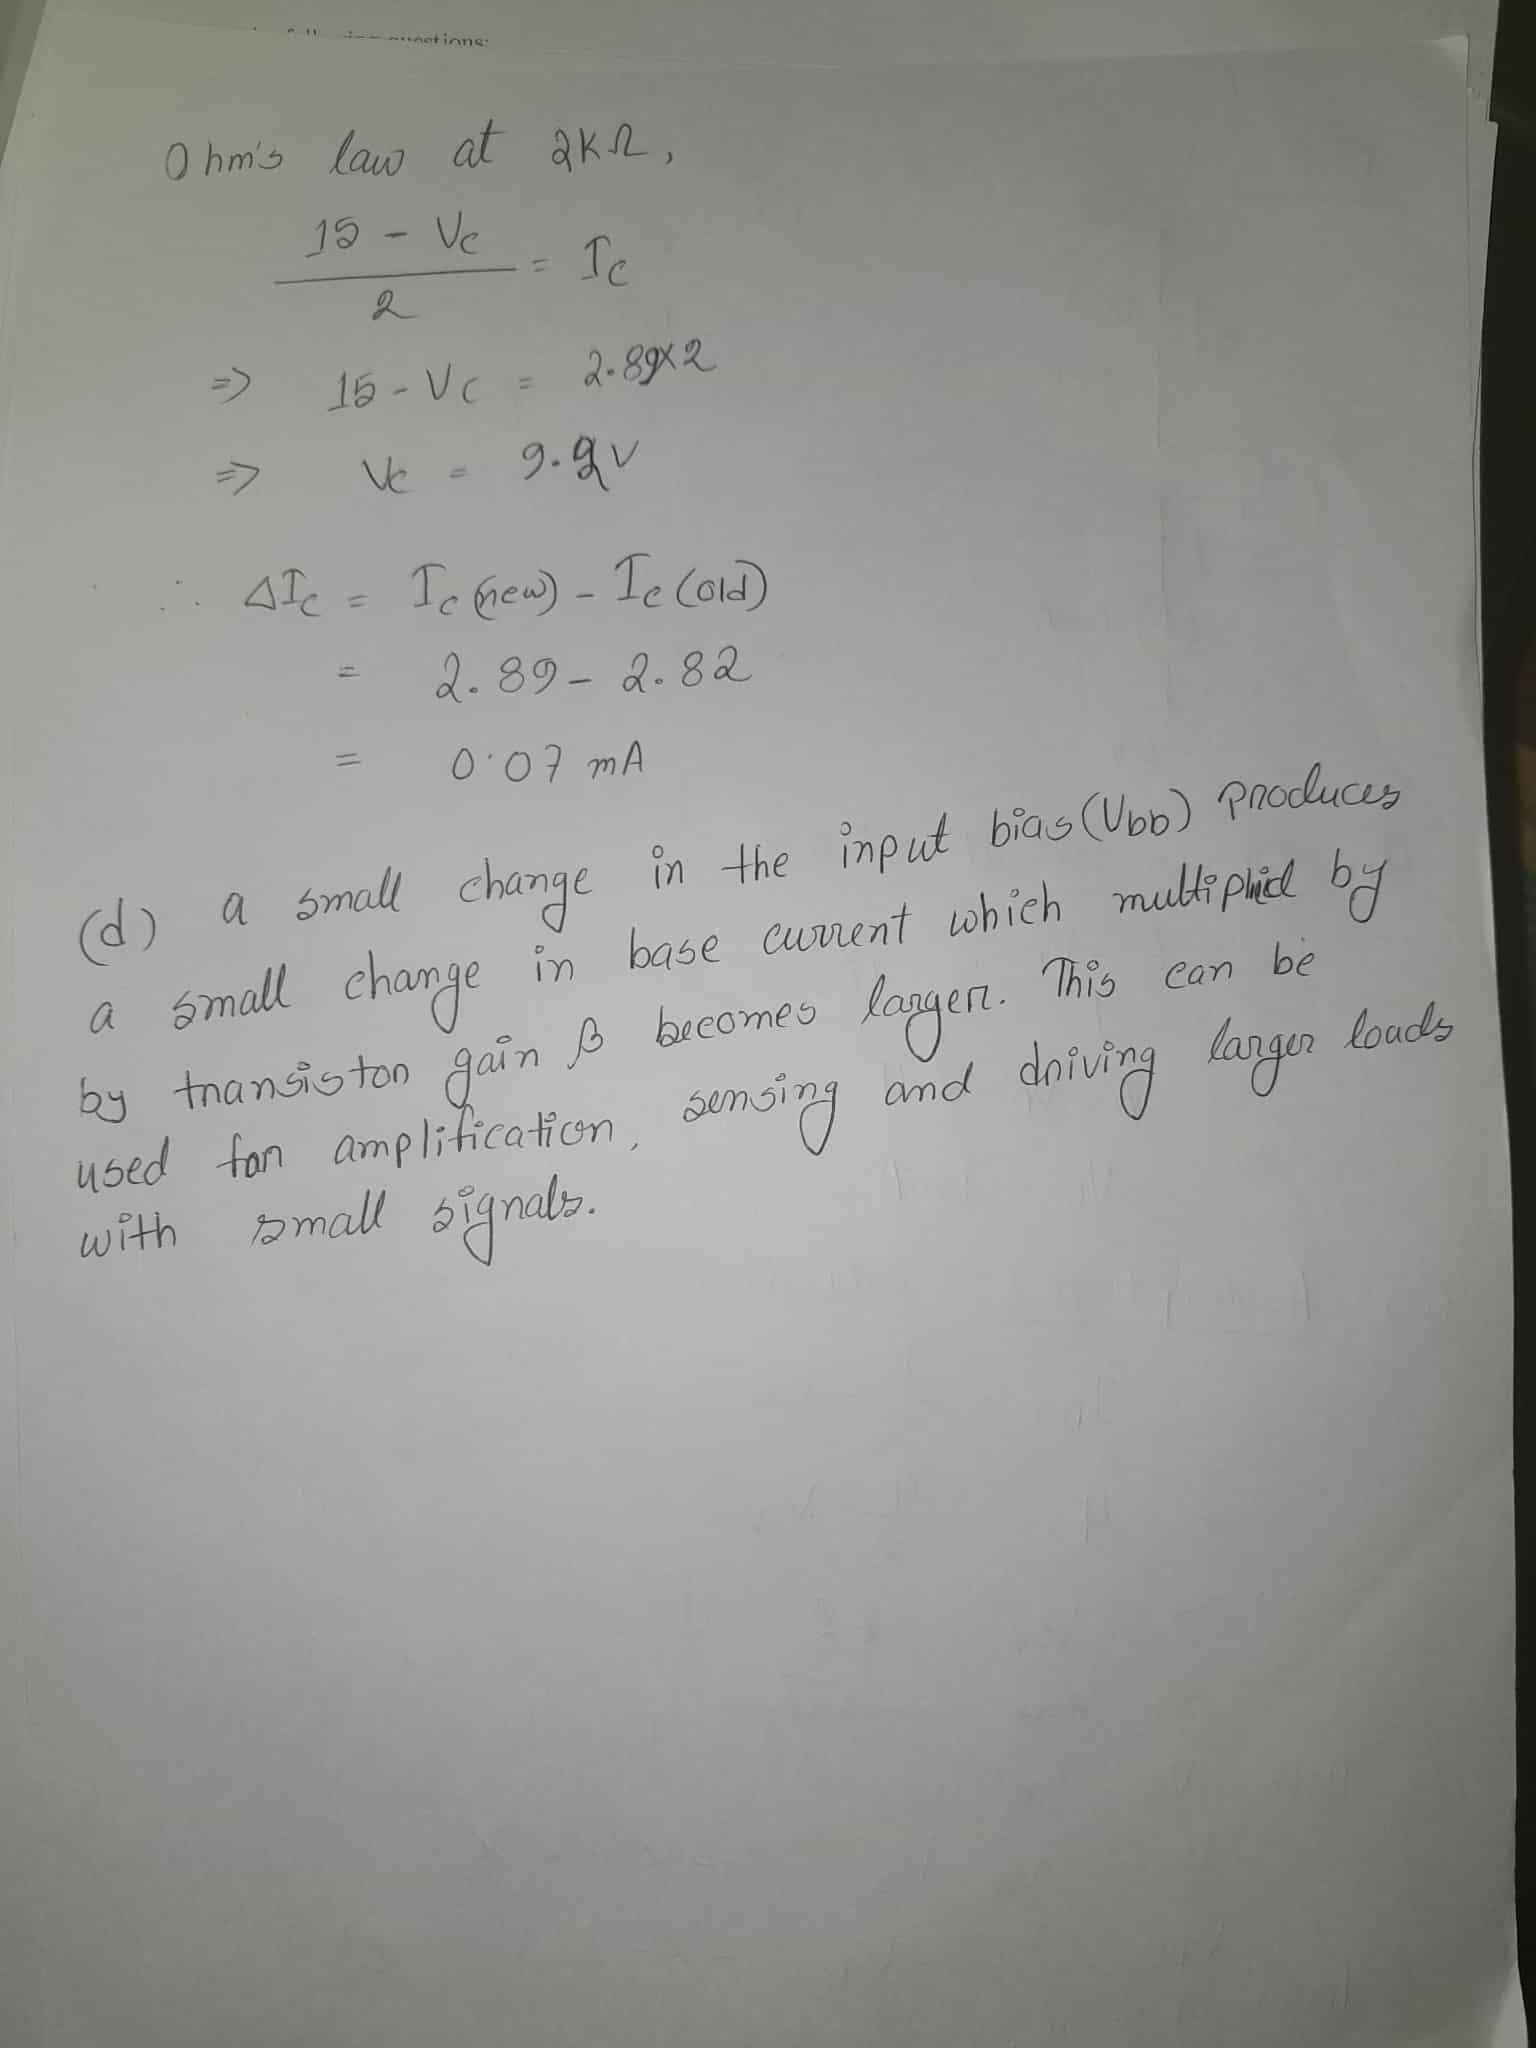 questions:
Ohm's law at 2kΩ,
15 - Vc
2
= Ic
=> 15 - Vc = 2.89×2
=> Vc = 9.2v
∴ ΔIc = Ic (new) - Ic (old)
= 2.89 - 2.82
= 0.07 mA
(d) a small change in the input bias (Vbb) produces
a small change in base current which multiplied by
by transistor gain β becomes larger. This can be
used for amplification, sensing and driving larger loads
with small signals.